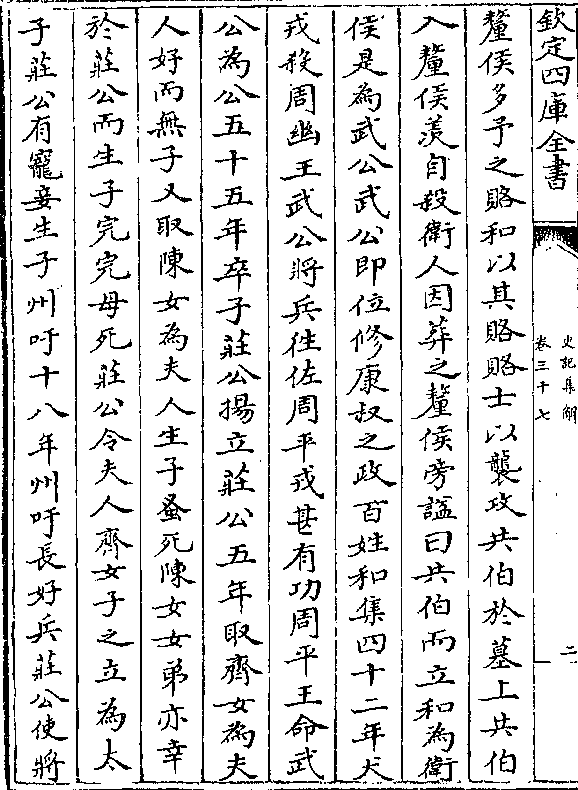 欽定四庫全書
史記集解
卷三十七
二
釐侯多予之賂和以其賂賂士以襲攻共伯於墓上共伯
入釐侯羨自殺衛人因葬之釐侯旁諡曰共伯而立和為衛
侯是為武公武公即位修康叔之政百姓和集四十二年犬
戎殺周幽王武公將兵往佐周平戎甚有功周平王命武
公為公五十五年卒子莊公揚立莊公五年取齊女為夫
人好而無子又取陳女為夫人生子蚤死陳女女弟亦幸
於莊公而生子完完母死莊公令夫人齊女子之立為太
子莊公有寵妾生子州吁十八年州吁長好兵莊公使將